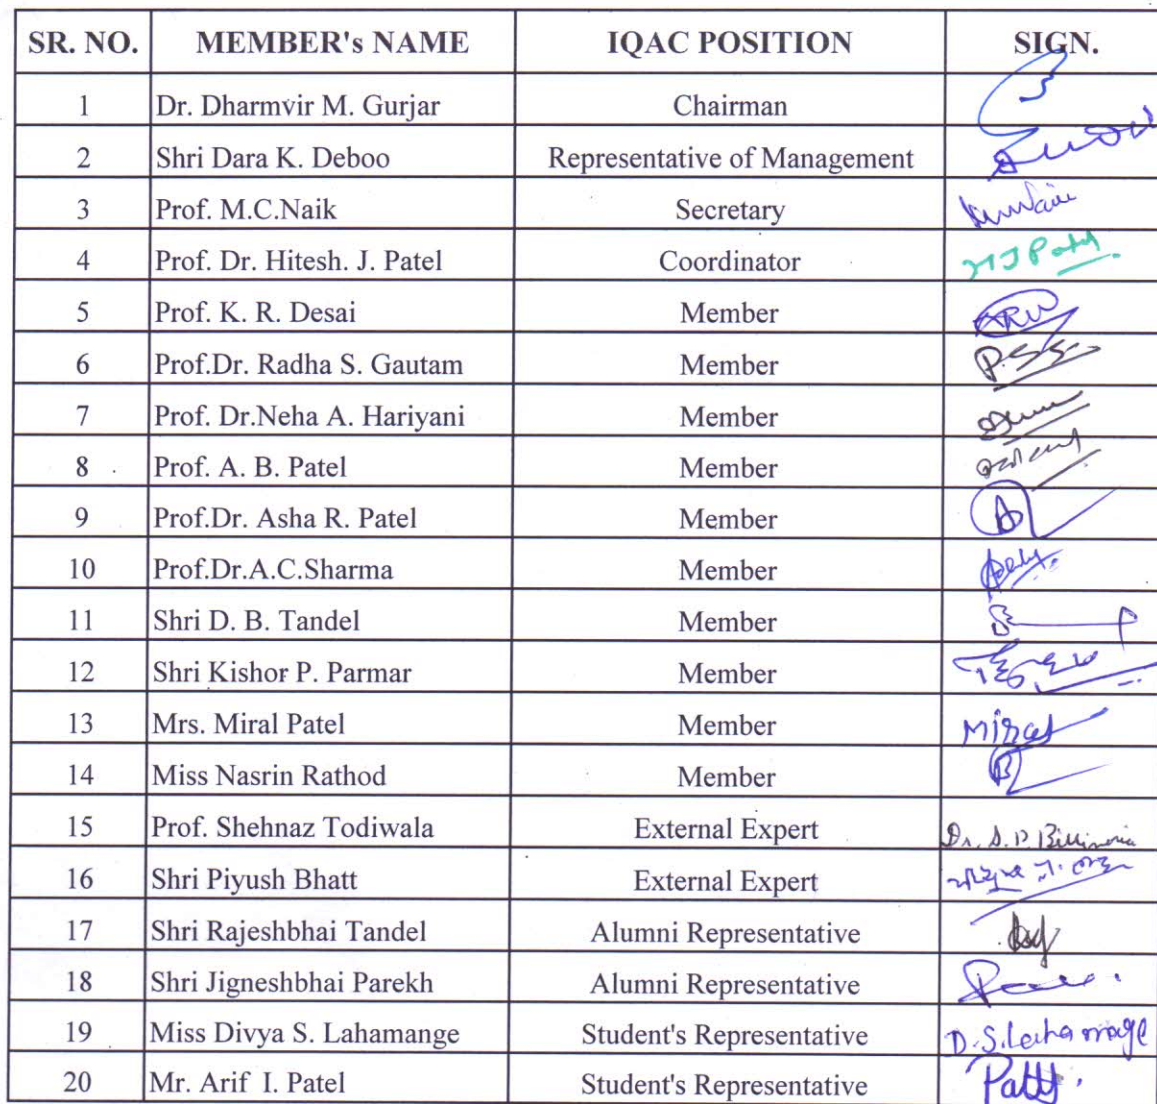 SR. NO. MEMBER's NAME IQAC POSITION SIGN.
1 Dr. Dharmvir M. Gurjar Chairman
2 Shri Dara K. Deboo Representative of Management
3 Prof. M.C.Naik Secretary
4 Prof. Dr. Hitesh. J. Patel Coordinator HJPatel
5 Prof. K. R. Desai Member
6 Prof.Dr. Radha S. Gautam Member
7 Prof. Dr.Neha A. Hariyani Member
8 Prof. A. B. Patel Member
9 Prof.Dr. Asha R. Patel Member
10 Prof.Dr.A.C.Sharma Member
11 Shri D. B. Tandel Member
12 Shri Kishor P. Parmar Member
13 Mrs. Miral Patel Member Miral
14 Miss Nasrin Rathod Member
15 Prof. Shehnaz Todiwala External Expert Dr. S. P. Billimoria
16 Shri Piyush Bhatt External Expert
17 Shri Rajeshbhai Tandel Alumni Representative
18 Shri Jigneshbhai Parekh Alumni Representative
19 Miss Divya S. Lahamange Student's Representative D.S.Lahamage
20 Mr. Arif I. Patel Student's Representative